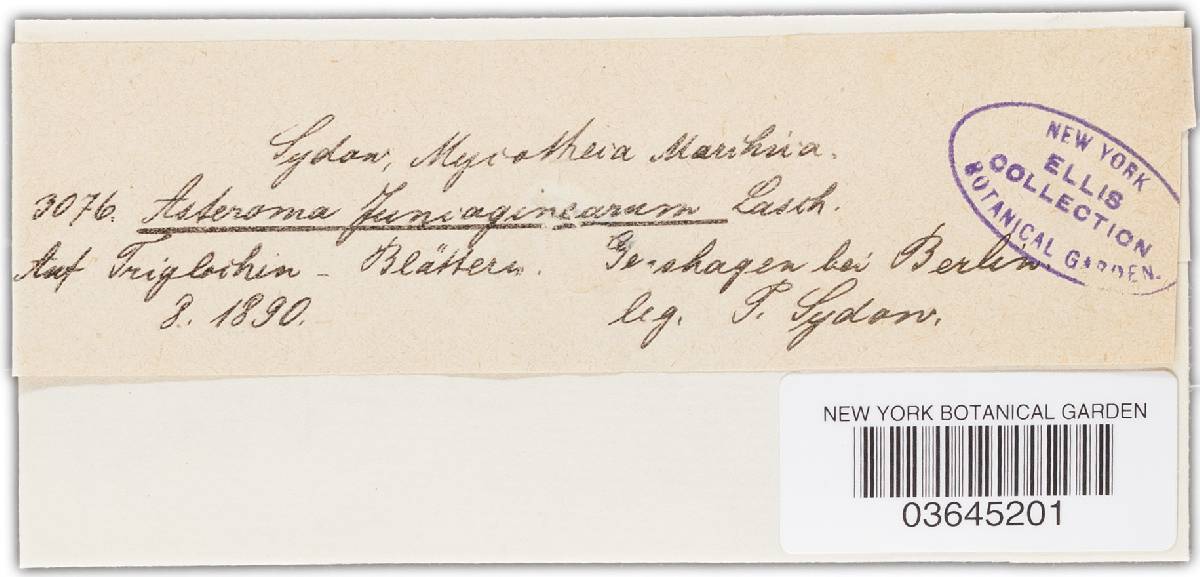 Sydow, Mycotheca Marchica.
3076. Asteroma Juncaginearum Lasch.
Auf Triglochin - Blättern. Genshagen bei Berlin.
8. 1890. leg. P. Sydow.
NEW YORK
ELLIS
COLLECTION
BOTANICAL GARDEN.
NEW YORK BOTANICAL GARDEN
03645201